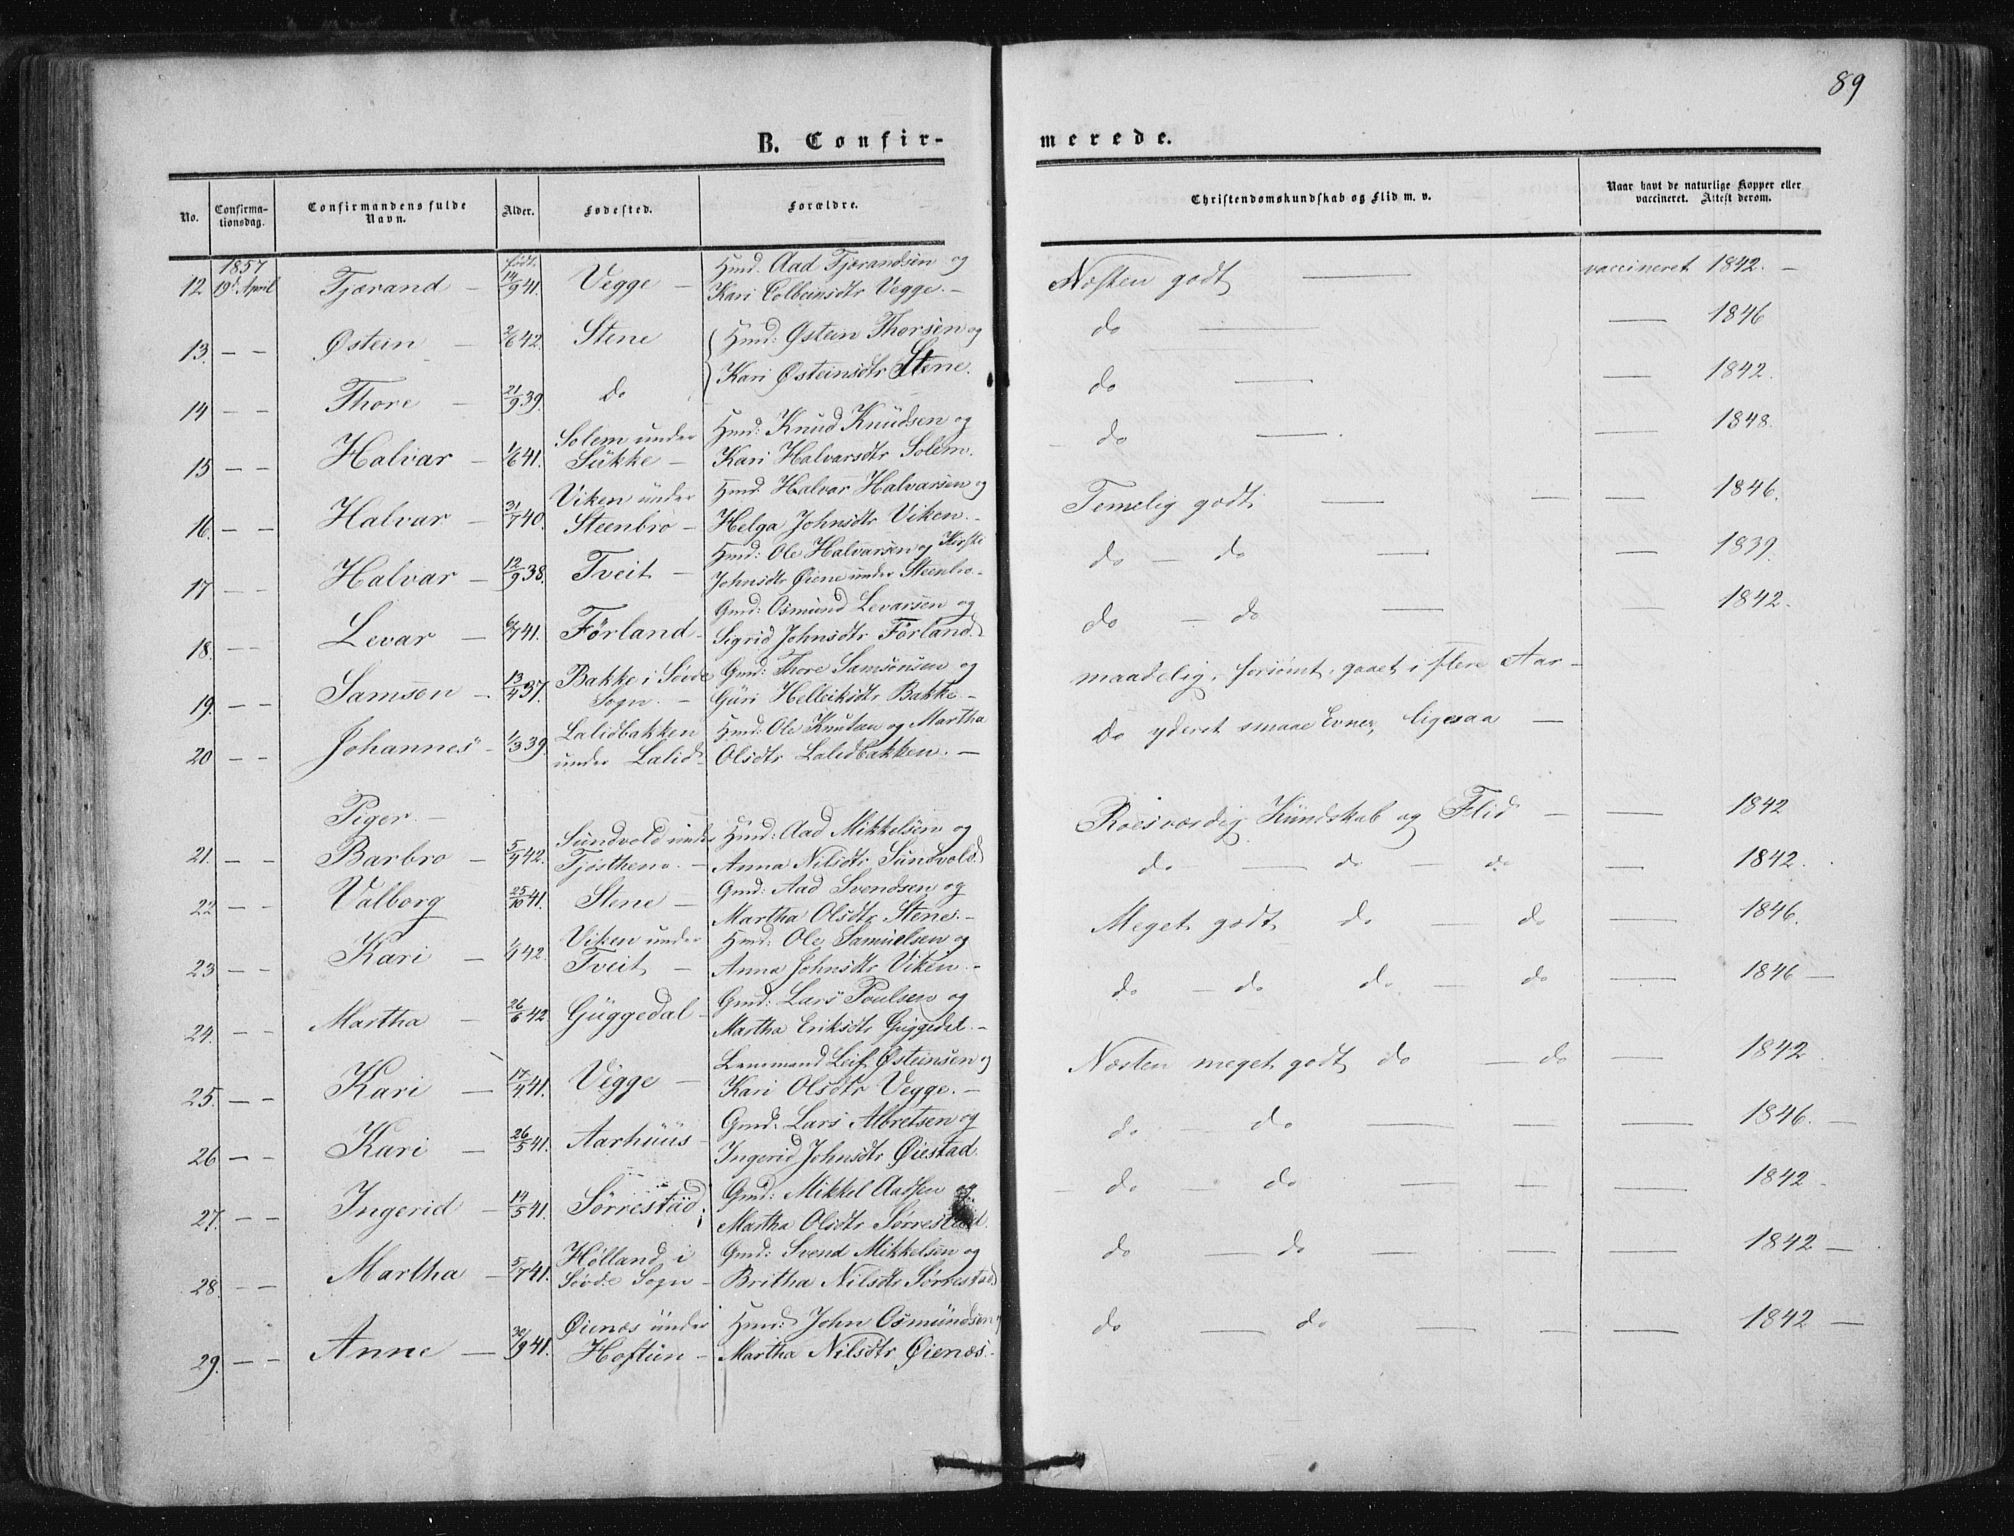 89
B. Confirmerede.
No. | Confirmationsdag. | Confirmandens fulde Navn. | Alder. | Fødested. | Forældre. | Christendomskundskab og Flid m. v. | Naar havt de naturlige Kopper eller vaccineret. Attest derom.
12 | 1857 19d April | Tjærand — | født 14/9 41. | Vegge — | Hmd. Aad Tjærandsen og Kari Colbeinsdtr Vegge. — | Næsten godt — | vaccineret 1842. —
13. | — — | Østein — | 2/6 42. | Stene | Hmd: Østein Thorsen og Kari Østeinsdtr Stene. | do — | — 1846
14 | — — | Thore — | 21/9 39. | do | do — | — 1842.
15 | — — | Halvar — | 1/6 41. | Solem under Sükke — | Hmd: Knud Knudsen og Kari Halvarsdtr Solem. | do — | — 1848.
16. | — — | Halvar — | 31/7 40. | Viken under Steenbro — | Hmd. Halvar Halvarsen og Helga Johnsdtr Viken. — | Temelig godt — — | — 1846.
17 | — — | Halvar — | 12/9 38. | Tveit — | Hmd: Ole Halvarsen og Kirsti Johnsdtr Øiene under Steenbro. | do — do — | — 1839.
18. | — — | Levar — | 6/7 41. | Førland — | Gmd: Osmund Levarsen og Sigrid Johnsdtr Førland. | do — do — | — 1842.
19. | — — | Samson — | 13/4 37. | Bakke i Søvde Sogn. — | Gmd: Thore Samsonsen og Guri Helleiksdtr Bakke. — | maadelig, forsømt, gaaet i flere Aar —
20 | — — | Johannes — | 1/3 39. | Lalidbakken under Lalid | Hmd: Ole Knutsen og Martha Olsdtr Lalidbakken. — | do yderst smaae Evner, ligesaa —
Piger. —
21. | — — | Barbro — | 5/4 42. | Sundvold under Tjøstheim. — | Hmd: Aad Mikkelsen og Anna Nilsdtr Sundvold | Roesværdig Kundskab og Flid — | — 1842
22 | — — | Valborg | 25/10 41. | Stene — | Gmd: Aad Svendsen og Martha Olsdtr Stene. — | do — do — do | — 1842.
23 | — — | Kari — | 1/1 42. | Viken under Tveit — | Hmd: Ole Samuelsen og Anna Johnsdtr Viken. — | Meget godt do — do | — 1846.
24. | — — | Martha — | 26/6 42 | Guggedal — | Gmd: Lars Poulsen og Martha Eriksdtr Guggedal. — | do — do do — do | — 1846 —
25. | — — | Kari — | 17/4 41. | Vegge — | Lensmand Leif Østeinsen og Kari Olsdtr Vegge. — | Næsten meget godt do — do | — 1842
26 | — — | Kari — | 26/5 41. | Aarhuus — | Gmd. Lars Albretsen og Ingerid Johnsdtr Øiestad. | do — do — — | — 1846. —
27. | — — | Ingerid — | 14/5 41. | Sørrestad | Gmd: Mikkel Aadsen og Martha Olsdtr Sørrestad. | do — do — — | — 1842 —
28. | — — | Martha — | 5/7 41. | Hølland i Søvde Sogn — | Gmd: Svend Mikkelsen og Britha Nilsdtr Sørrestad | do — do — — | — 1842 —
29. | — — | Anne — | 30/9 41. | Øienæs under Hoftun — | Hmd: John Osmundsen og Martha Nilsdtr Øienæs. | do — do — — | — 1842 —